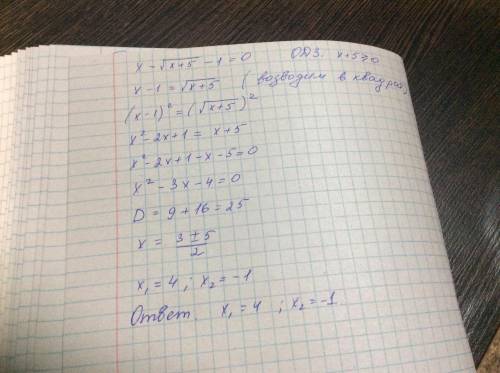 x - √x+5 - 1 = 0 ОДЗ. x+5≥0
x - 1 = √x+5 (возводим в квадрат)
(x-1)² = (√x+5)²
x² - 2x + 1 = x + 5
x² - 2x + 1 - x - 5 = 0
x² - 3x - 4 = 0
D = 9 + 16 = 25
x = (3 ± 5)/2
x₁ = 4 ; x₂ = -1
Ответ. x₁ = 4 ; x₂ = -1